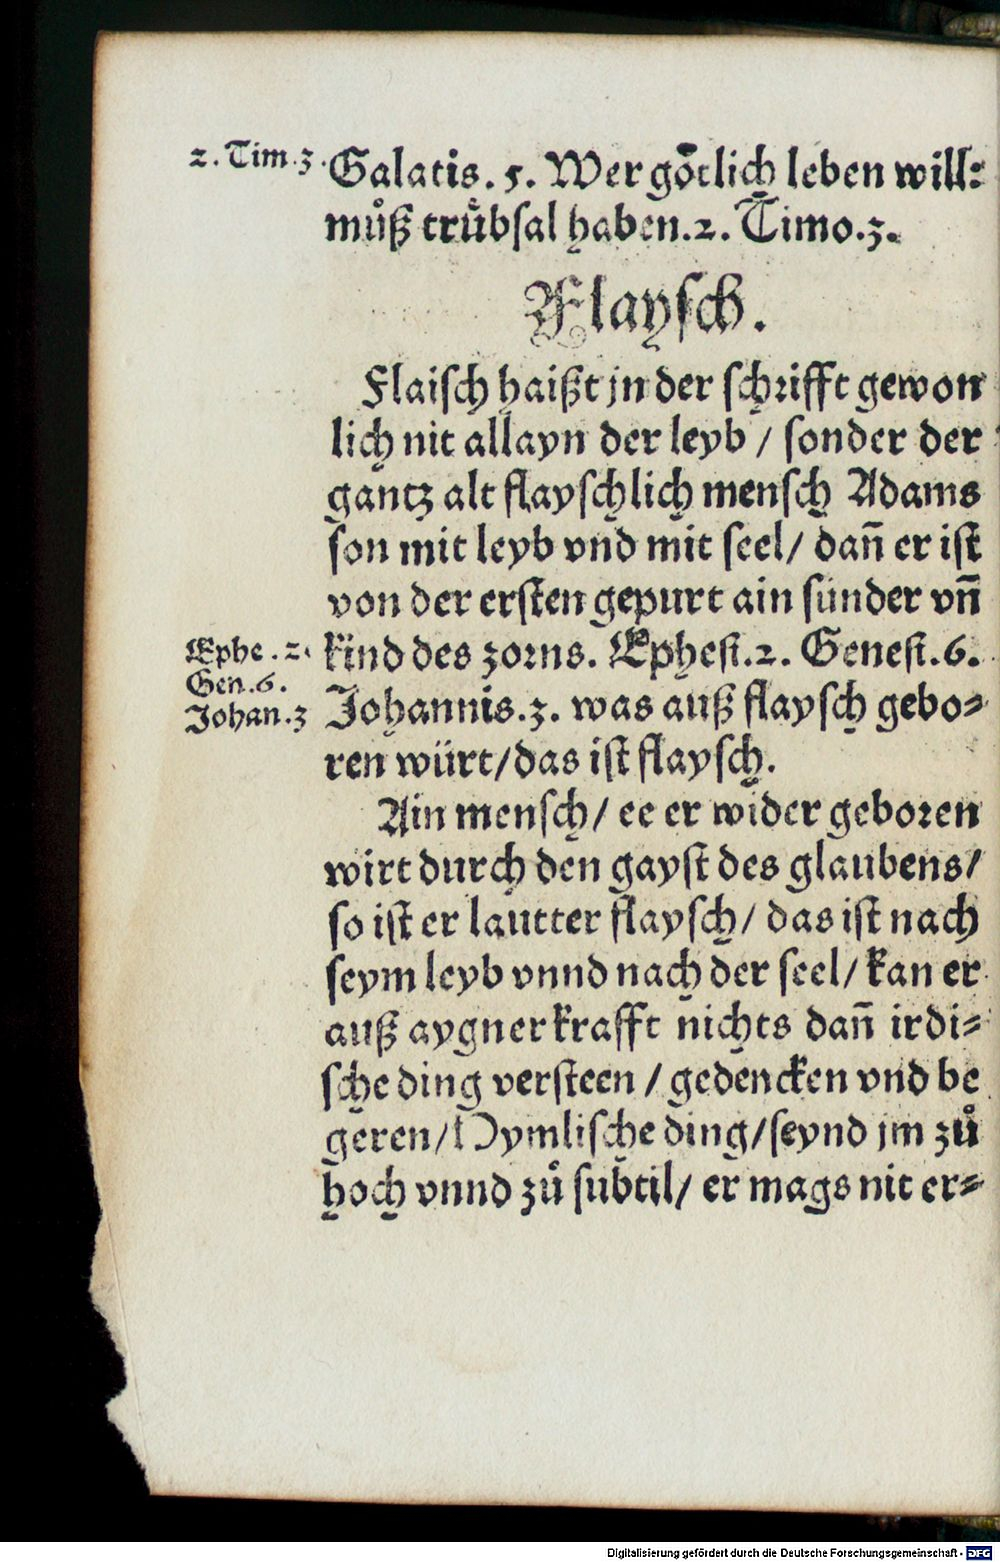 2. Tim.3.
Galatis. 5. Wer götlich leben will:
muͦß truͤbsal haben.2. Timo.3.
Flaysch.
Flaisch haißt jn der schrifft gewon
lich nit allayn der leyb / sonder der
gantz alt flayschlich mensch Adams
son mit leyb vnd mit seel/ dañ er ist
von der ersten gepurt ain sünder vñ
Ephe. 2.
Gen.6.
Johan.3
kind des zorns. Ephesi.2. Genesi.6.
Johannis.3. was auß flaysch gebo⸗
ren würt/das ist flaysch.
Ain mensch/ ee er wider geboren
wirt durch den gayst des glaubens/
so ist er lautter flaysch/ das ist nach
seym leyb vnnd nach der seel/ kan er
auß aygner krafft nichts dañ irdi⸗
sche ding versteen / gedencken vnd be
geren/ Hymlische ding/seynd jm zuͦ
hoch vnnd zuͦ subtil/ er mags nit er⸗
Digitalisierung gefördert durch die Deutsche Forschungsgemeinschaft - DFG